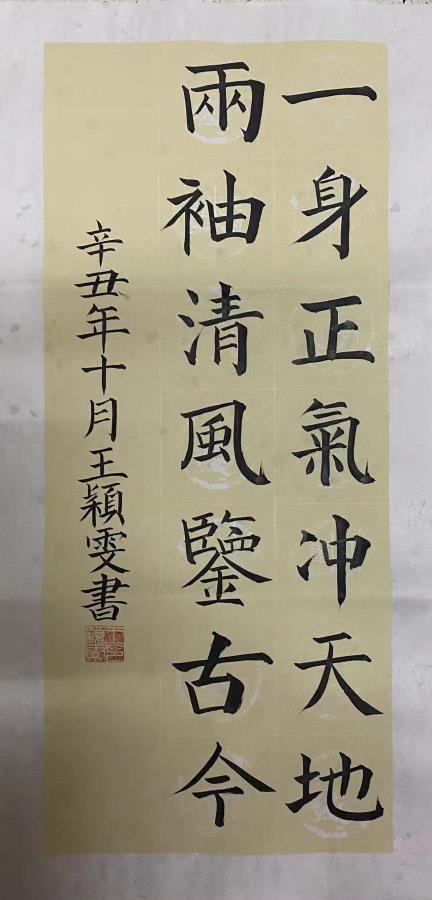 一身正氣冲天地
兩袖清風鑒古今
辛丑年十月王穎雯書